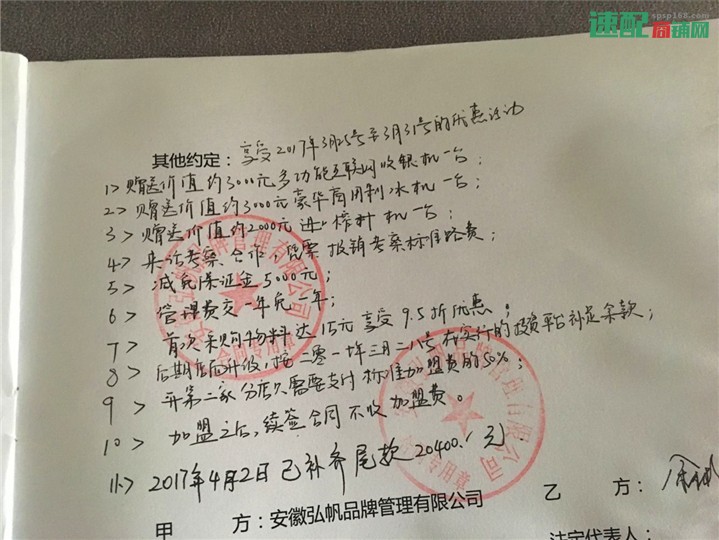 速配商铺网
spsp168.com
其他约定：享受2017年3月25号至3月31号的优惠活动
1> 赠送价值约3000元多功能互联网收银机一台；
2> 赠送价值约3000元豪华商用制冰机一台；
3> 赠送价值约2000元进口榨汁机一台；
4> 来访考察合作，凭票报销考察标准路费；
5> 减免保证金5000元；
6> 管理费交一年免一年；
7> 首次采购物料达15元享受9.5折优惠；
8> 后期店面升级，按二零一七年三月二八号在实行的投资平台补足余款；
9> 开第二家分店只需要支付标准加盟费的50%；
10> 加盟之后，续签合同不收加盟费。
11> 2017年4月2日已补齐尾款20400.1元
甲 方：安徽弘帆品牌管理有限公司
乙 方：
法定代表人：
品牌管理有限公司
合同专用章
管理有限公司